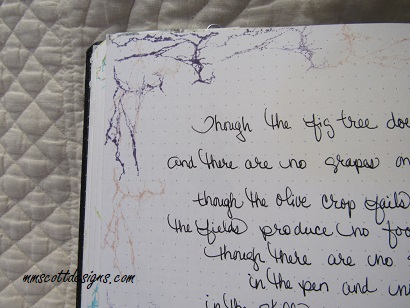 Though the fig tree doe
and there are no grapes on
though the olive crop fails
the fields produce no foo
though there are no
in the pen and
in the
mmscottdesigns.com